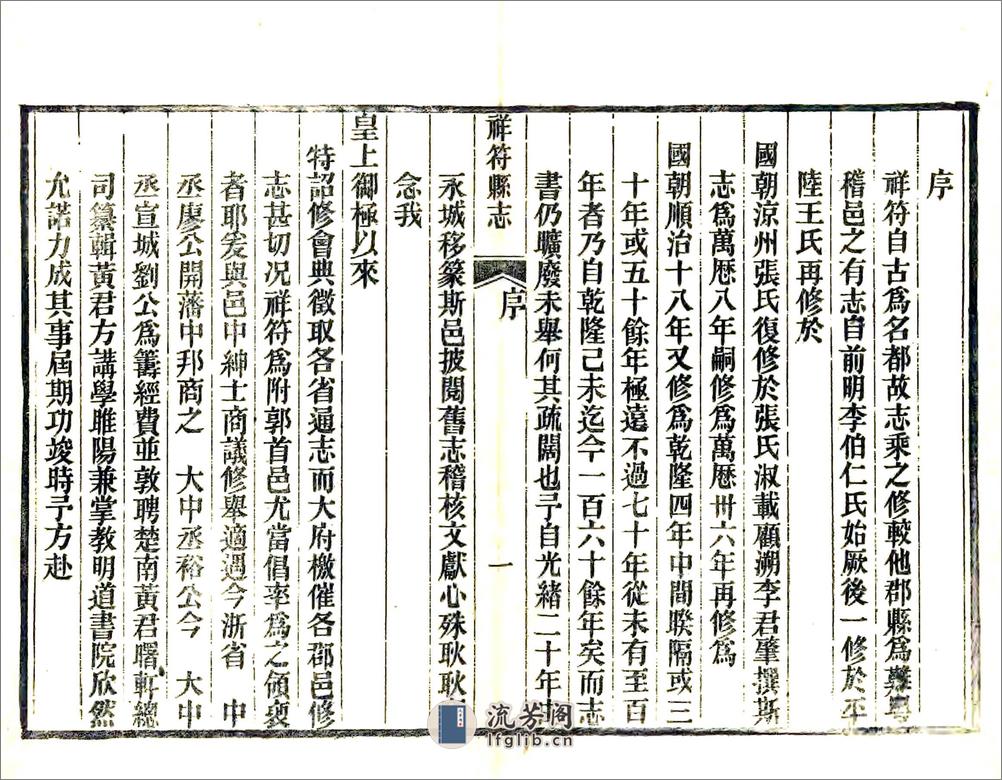 序
祥符自古爲名都故志乘之修較他郡縣爲難粤
稽邑之有志自前明李伯仁氏始厥後一修於平
陸王氏再修於
國朝涼州張氏復修於張氏淑載顧溯李君肇撰斯
志爲萬厯八年嗣修爲萬厯卅六年再修爲
國朝順治十八年又修爲乾隆四年中間睽隔或三
十年或五十餘年極遠不過七十年從未有至百
年者乃自乾隆己未迄今一百六十餘年矣而志
書仍曠廢未舉何其疏闊也予自光緒二十年由
祥符縣志
序
一
永城移篆斯邑披閱舊志稽核文獻心殊耿耿
念我
皇上御極以來
特詔修會典徵取各省通志而大府檄催各郡邑修
志甚切況祥符爲附郭首邑尤當倡率爲之領袠
者耶爰與邑中紳士商議修舉適遇今浙省 中
丞廖公開藩中邦商之 大中丞裕公今 大中
丞宣城劉公爲籌經費並敦聘楚南黃君曙軒總
司纂輯黃君方講學睢陽兼掌教明道書院欣然
允諾力成其事屆期功竣時予方赴
流芳阁
lfglib.cn